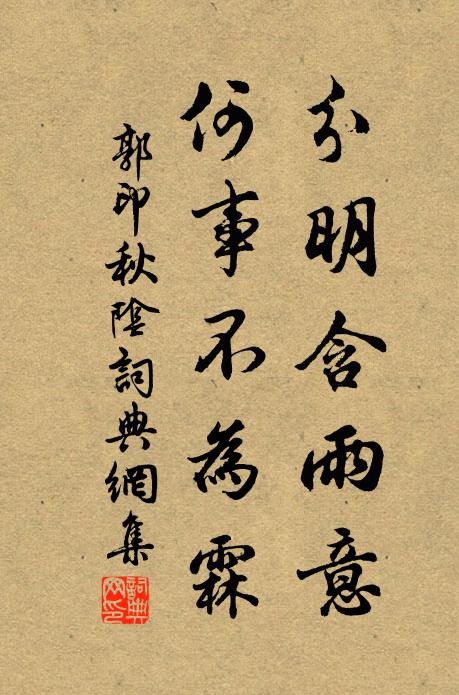 分明含雨意
何事不為霖
郭印秋陰詞典網集
詞典网印